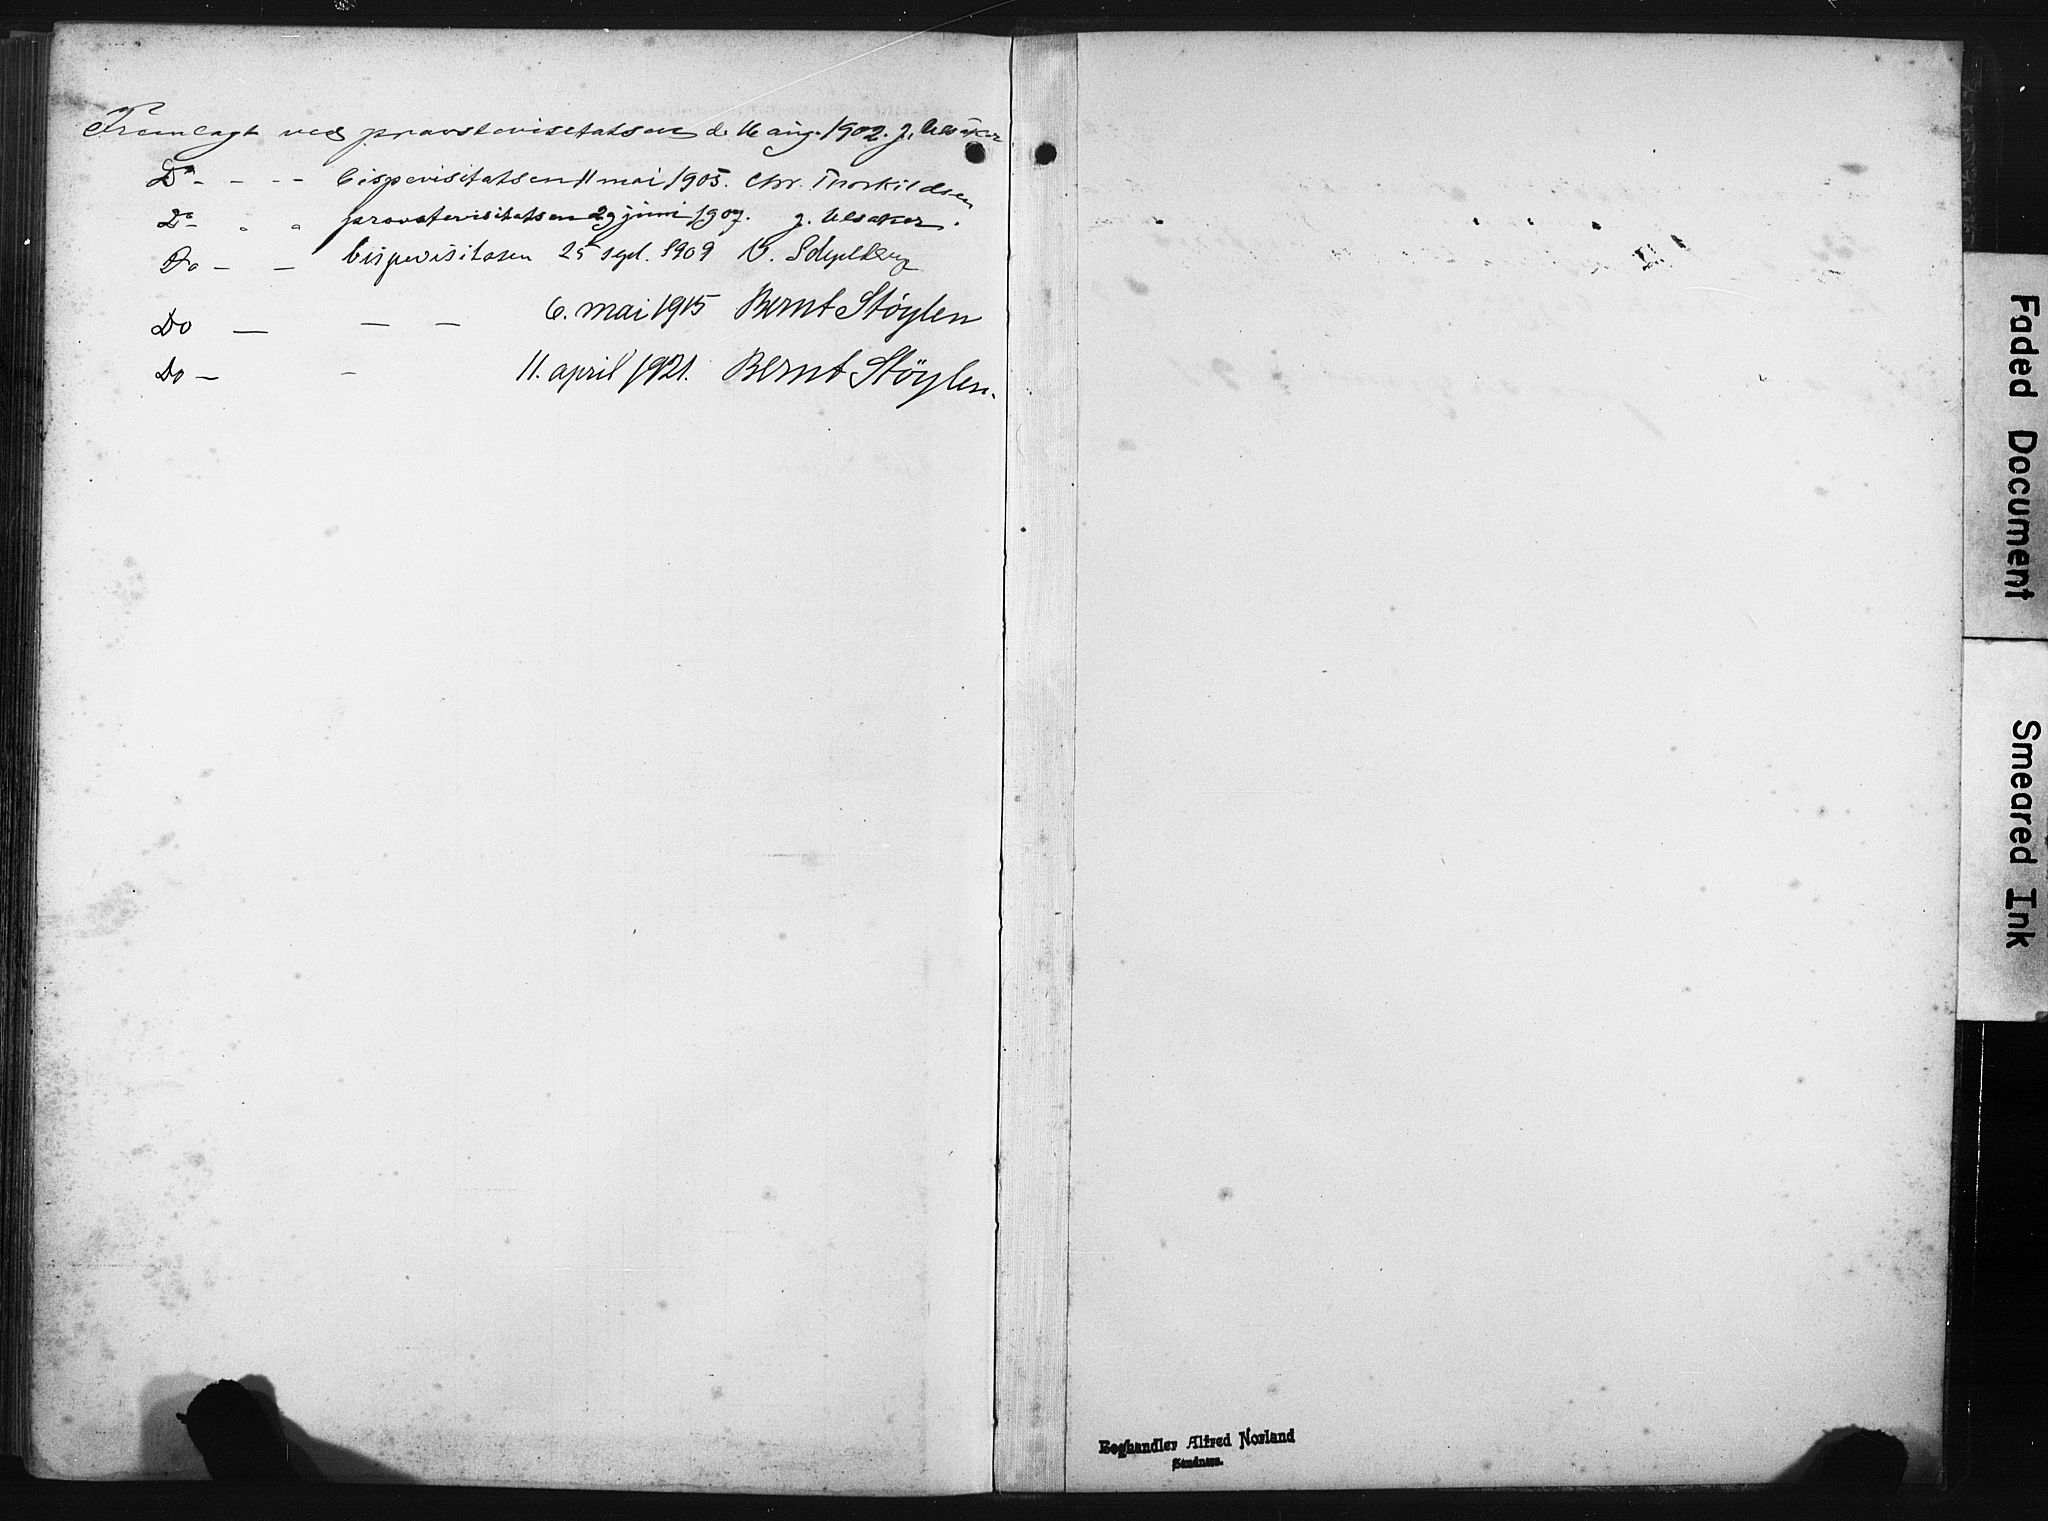 Fremlagt ved provstevisitatsen d. 16 aug. 1902. J.
Do - - - bispevisitatsen 11 mai 1905. Chr. Thorkildsen
Do " " provstevisitatsen 29 juni 1907. J.
Do — — bispevisitasen 25 sept. 1909 B. Schjelderup
Do — — — 6. mai 1915 Bernt Støylen
Do — - 11. april 1921. Bernt Støylen.
Boghandler Alfred Norland
Sandnes.
Faded Document
Smeared Ink